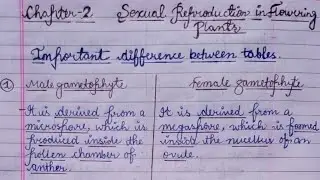 Chapter-2. Sexual Reproduction in Flowering
Plants
Important difference between tables.
① Male gametophyte
It is derived from a
microspore, which is
produced inside the
pollen chamber of
anther.
Female gametophyte
It is derived from a
megaspore, which is formed
inside the nucellus of an
ovule.